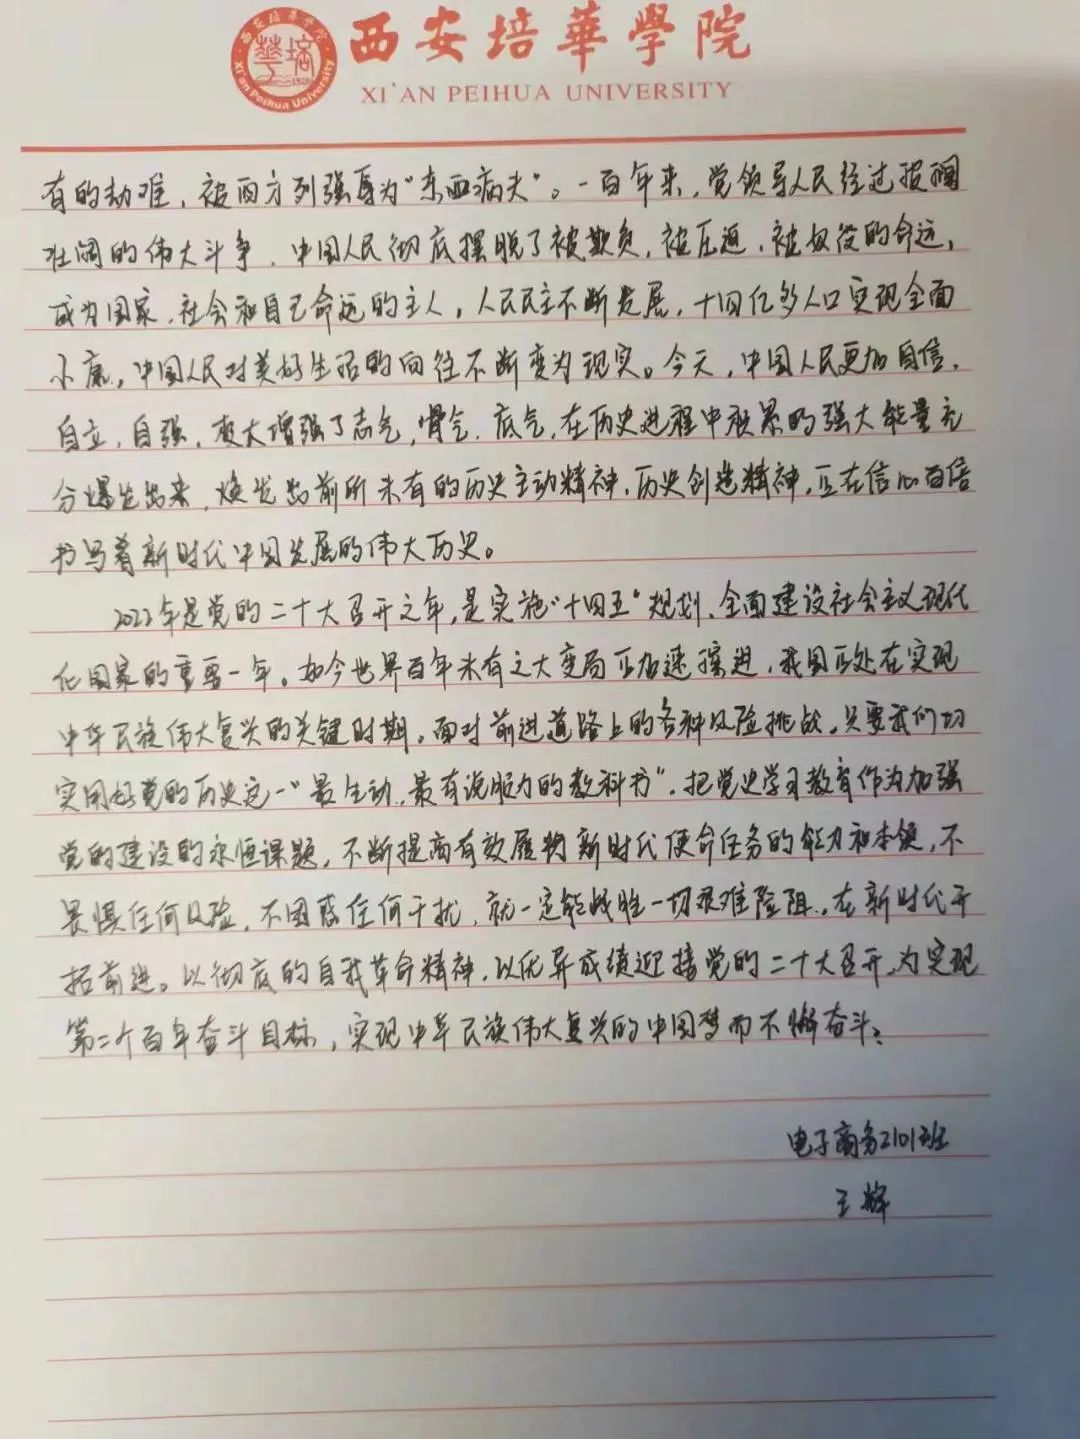 西安培華學院
XI'AN PEIHUA UNIVERSITY
西安培華學院
Xi'an Peihua University
有的劫难，被西方列强辱为“东亚病夫”。一百年来，党领导人民经过波澜
壮阔的伟大斗争，中国人民彻底摆脱了被欺负，被压迫，被奴役的命运，
成为国家、社会和自己命运的主人，人民民主不断发展，十四亿多人口实现全面
小康，中国人民对美好生活的向往不断变为现实。今天，中国人民更加自信，
自立，自强，极大增强了志气，骨气，底气，在历史进程中积累的强大能量充
分爆发出来，焕发出前所未有的历史主动精神，历史创造精神，正在信心百倍
书写着新时代中国发展的伟大历史。
2022年是党的二十大召开之年，是实施“十四五”规划、全面建设社会主义现代
化国家的重要一年。如今世界百年未有之大变局正加速演进，我国正处在实现
中华民族伟大复兴的关键时期。面对前进道路上的各种风险挑战，只要我们切
实用好党的历史这一“最生动，最有说服力的教科书”，把党史学习教育作为加强
党的建设的永恒课题，不断提高有效履行新时代使命任务的能力和本领，不
畏惧任何风险，不困惑任何干扰，就一定能战胜一切艰难险阻，在新时代开
拓前进。以彻底的自我革命精神，以优异成绩迎接党的二十大召开，为实现
第二个百年奋斗目标，实现中华民族伟大复兴的中国梦而不懈奋斗；
电子商务2101班
王辉